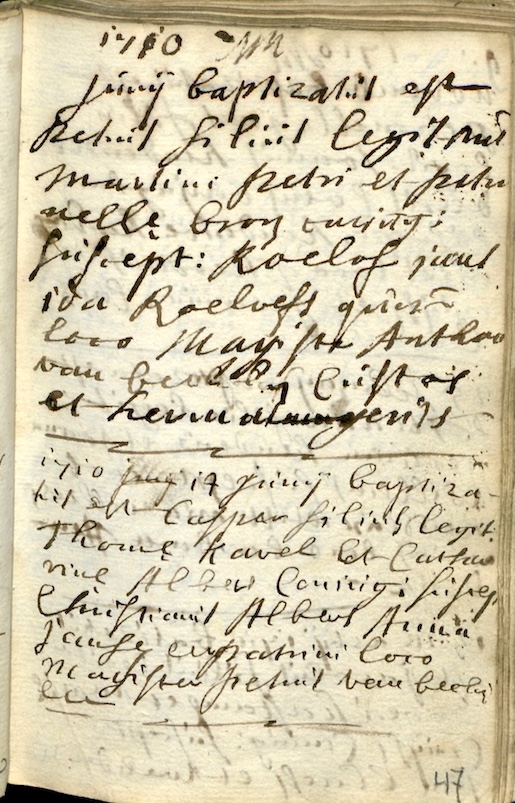 1710
junij baptizatus est
Petrus filius legitimus
Martini petri et petro
nelle bron coniug:
suscept: Roelof jans
ida Roeloefs quorum
loco Magister Anthon
van Custos
et herma gerits
1710 17 junij baptiza-
tus est Casper filius legit:
Thome Kavel et Catha
rine Albers Coniug: suscep
Christianus Albers Anna
janse en patrini loco
Magister petrus van beeke
47